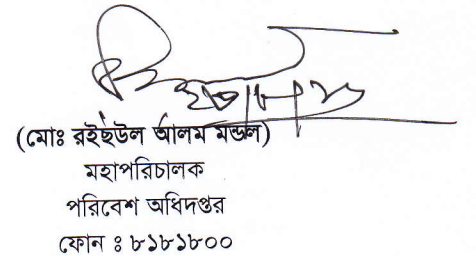 (মোঃ রইছউল আলম মন্ডল)
মহাপরিচালক
পরিবেশ অধিদপ্তর
ফোন ঃ ৮১৮১৮০০